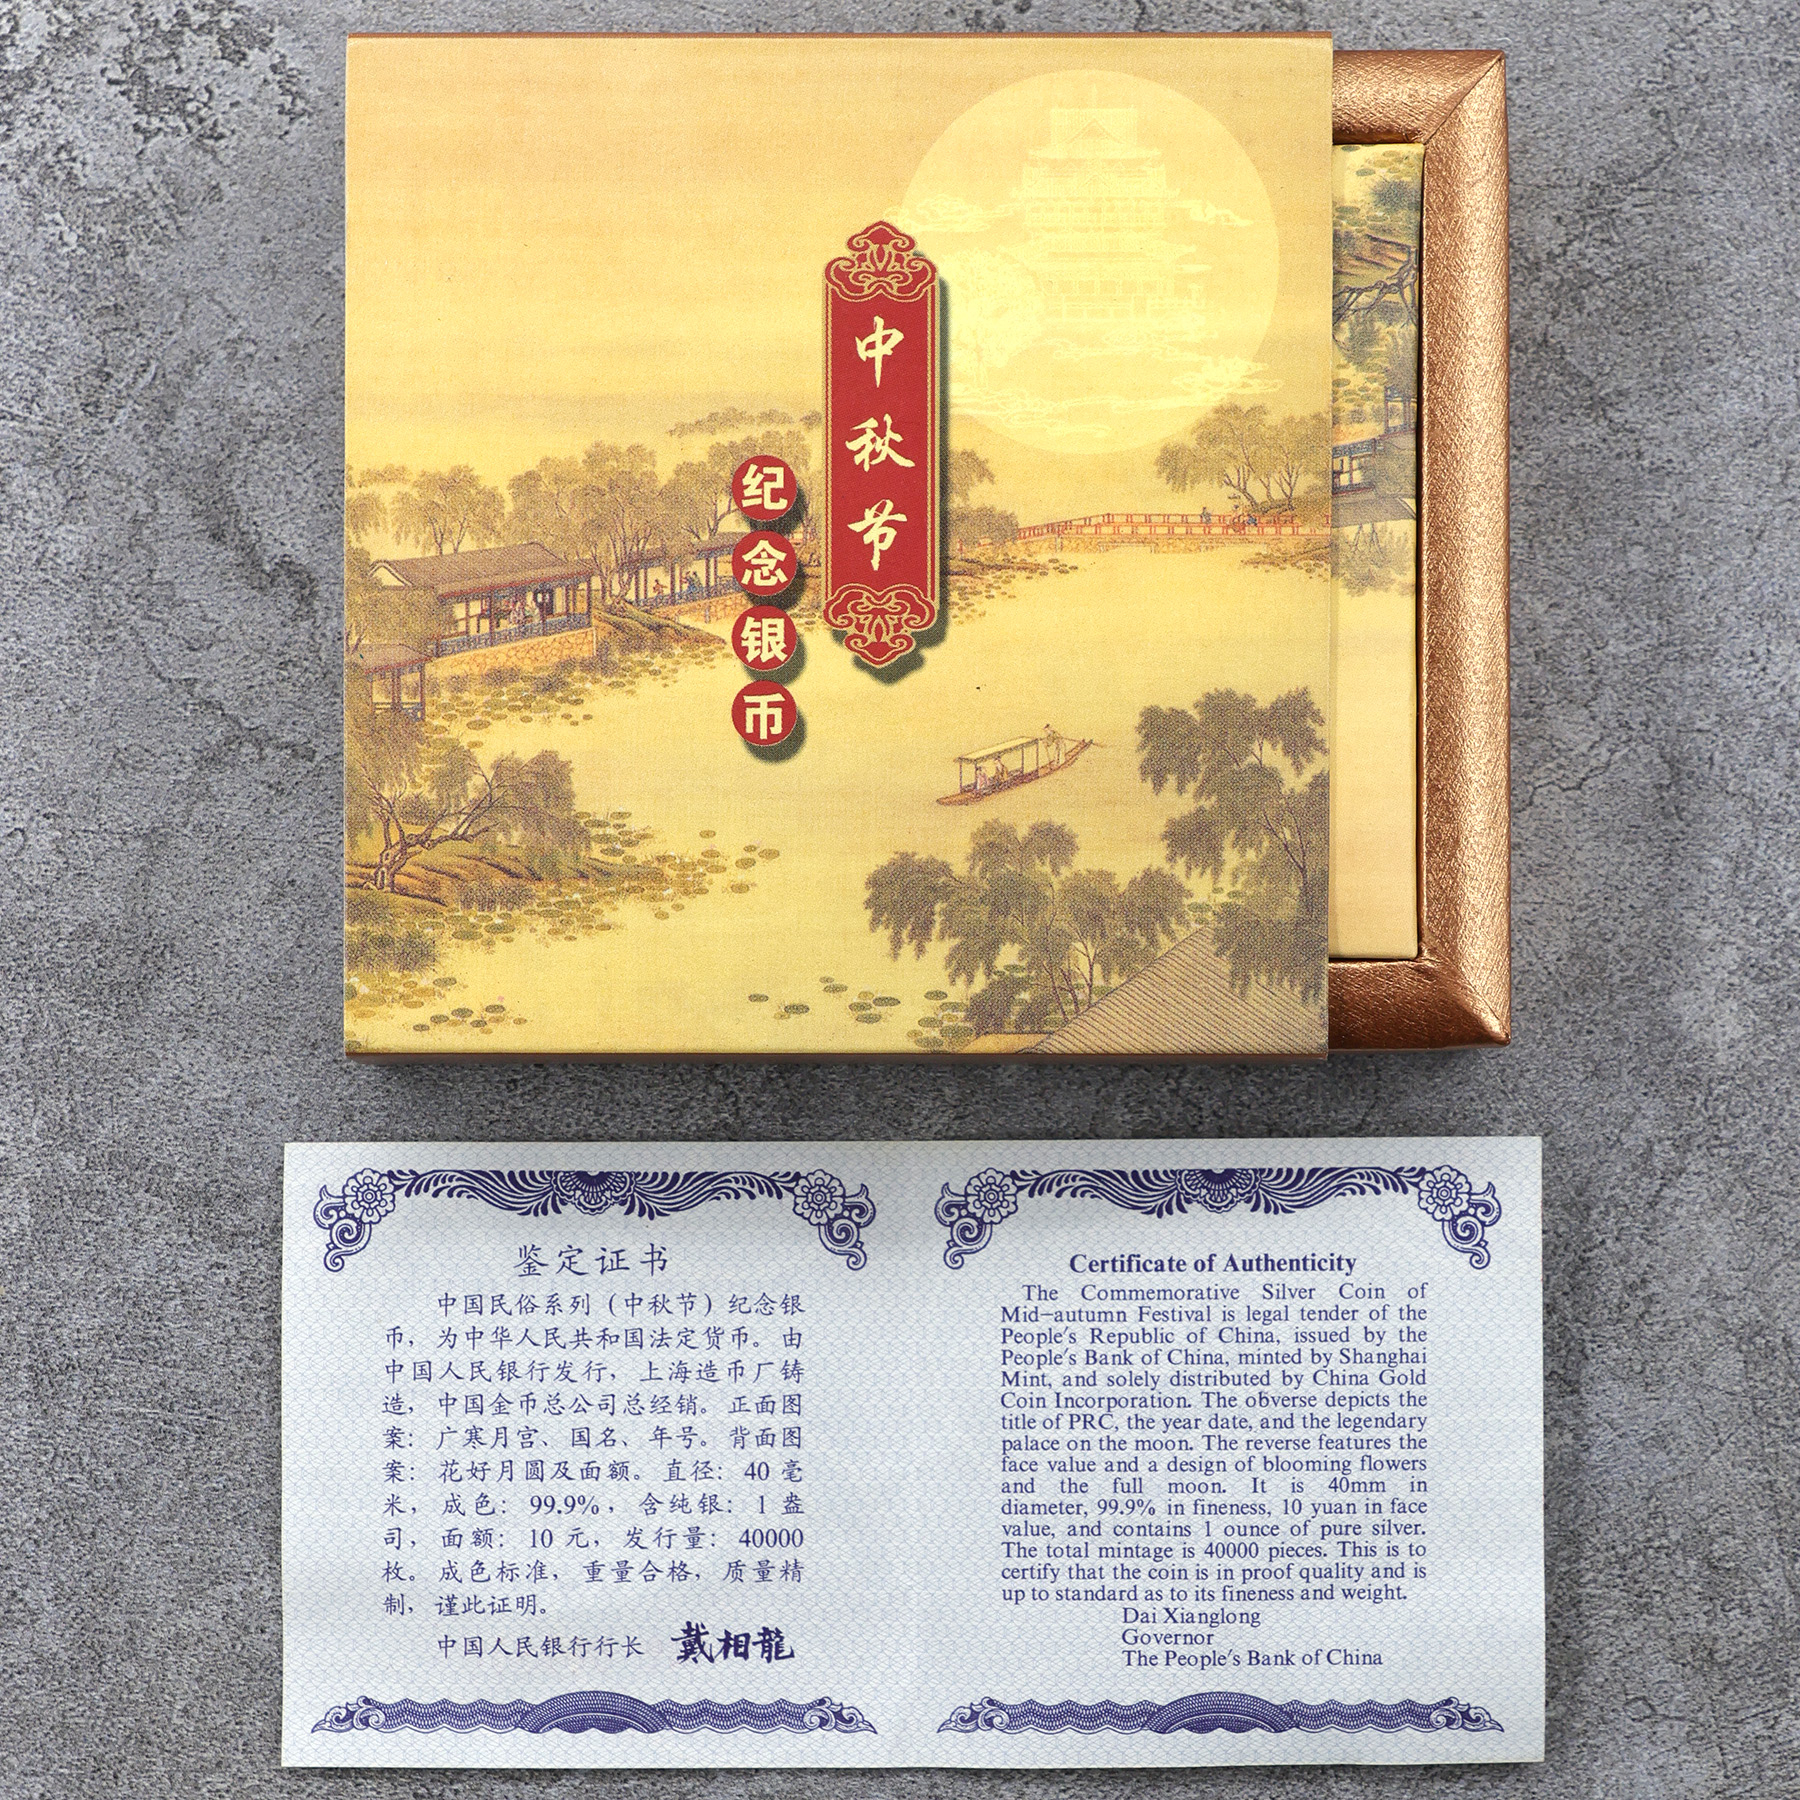 中秋节
纪念银币
鉴定证书
中国民俗系列（中秋节）纪念银
币，为中华人民共和国法定货币。由
中国人民银行发行，上海造币厂铸
造，中国金币总公司总经销。正面图
案：广寒月宫、国名、年号。背面图
案：花好月圆及面额。直径：40 毫
米，成色：99.9%，含纯银：1 盎
司，面额：10 元，发行量：40000
枚。成色标准，重量合格，质量精
制，谨此证明。
中国人民银行行长 戴相龍
Certificate of Authenticity
The Commemorative Silver Coin of
Mid-autumn Festival is legal tender of the
People's Republic of China, issued by the
People's Bank of China, minted by Shanghai
Mint, and solely distributed by China Gold
Coin Incorporation. The obverse depicts the
title of PRC, the year date, and the legendary
palace on the moon. The reverse features the
face value and a design of blooming flowers
and the full moon. It is 40mm in
diameter, 99.9% in fineness, 10 yuan in face
value, and contains 1 ounce of pure silver.
The total mintage is 40000 pieces. This is to
certify that the coin is in proof quality and is
up to standard as to its fineness and weight.
Dai Xianglong
Governor
The People's Bank of China